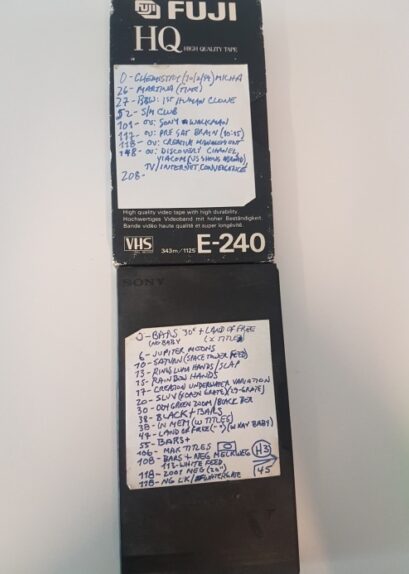 FUJI
FUJI
HQ HIGH QUALITY TAPE
0- CHEMISTRY (10/2/94) MICHA
26- MARTINA (TIME)
27- BBW: 1ST HUMAN CLONE
52- S/M CLUB
101- OU: SONY WALKMAN
117- OU: PRE SAT BRAIN (10:15)
118- OU: CREATIVE MANAGEMENT
148- OU: DISCOVERY CHANEL,
VIACOM (US SHOWS ABROAD)
TV/INTERNET CONVERGENCE
208-
High quality video tape with high durability.
Hochwertiges Videoband mit hoher Beständigkeit.
Bande vidéo haute qualité et super longévité.
VHS 343m/1125 E-240
SONY
0- BARS 30" + LAND OF FREE
(NO BABY X TITLE)
6- JUPITER MOONS
10- SATURN (SPACE TOWER FEED)
13- RINGS LUMA HANDS/SLAP
15- RAINBOW HANDS
17- CREATION UNDERWATER VARIATION
20- (OPEN GRATE)
30- ODY GREEN ZOOM/BLACK BER
38- BLACK + BARS
38- IN MEM (W TITLES)
47- LAND OF FREE (-") (W KAY BABY)
55- BARS+
106- MAR TITLES
108- BARS + NEG MECKWEG
113- WHITE FEED
118- 2001 NEG (20")
118- NG LK/ WATERGATE
H3
45